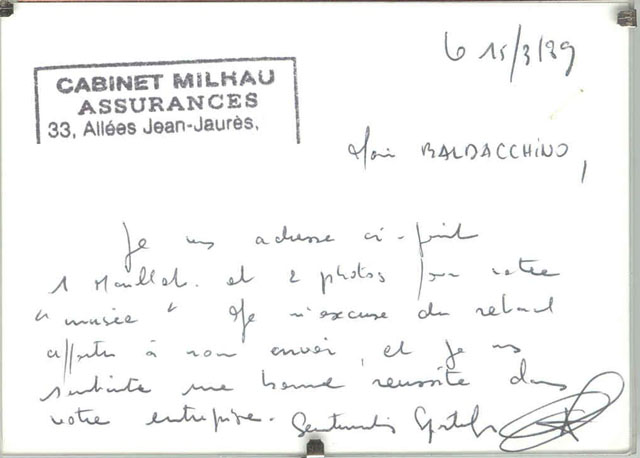 CABINET MILHAU
ASSURANCES
33, Allées Jean-Jaurès,
Le 15/3/89
BALDACCHINO,
Je vous adresse ci-joint
1 Maillot. et 2 photos pour votre
"musée" Je m'excuse du retard
apporté à mon envoi, et Je vous
souhaite une bonne réussite dans
votre entreprise. Sentiments Sportifs